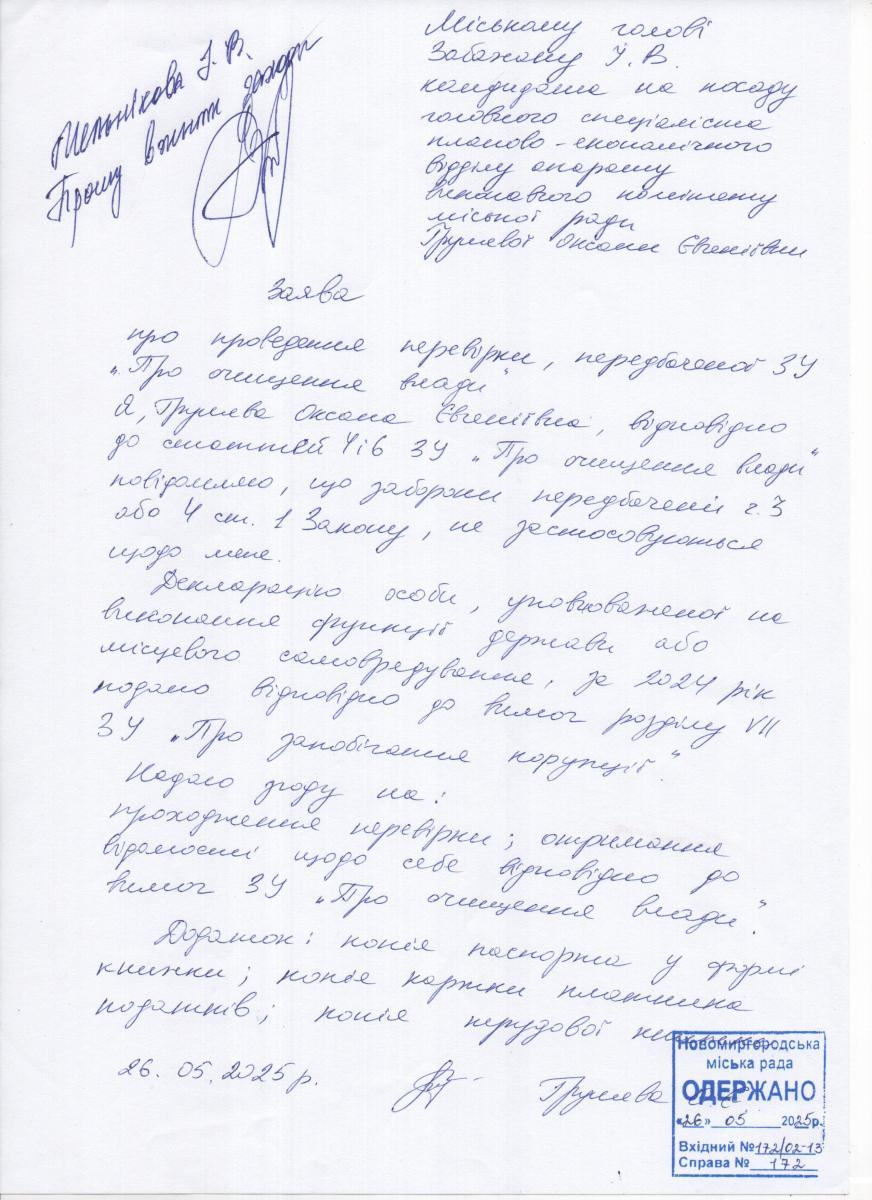 Мельнікова І. В.
Прошу вжити заходи
Міському голові
Забажану І. В.
кандидата на посаду
головного спеціаліста
планово-економічного
відділу апарату
виконавчого комітету
міської ради
Оксани Євгеніївни
Заява
про проведення перевірки, передбаченої ЗУ
„Про очищення влади"
Я, Оксана Євгеніївна, відповідно
до статтей 4 і 6 ЗУ „Про очищення влади"
повідомляю, що заборони передбачені ч. 3
або 4 ст. 1 Закону, не застосовуються
щодо мене.
Декларацію особи, уповноваженої на
виконання функції держави або
місцевого самоврядування, за 2024 рік
подано відповідно до вимог розділу VII
ЗУ „Про запобігання корупції".
Надаю згоду на:
проходження перевірки; отримання
відомостей щодо себе відповідно до
вимог ЗУ „Про очищення влади".
Додаток: копія паспорта у формі
книжки; копія картки платника
податків; копія трудової
26. 05. 2025 р.
Новомиргородська
міська рада
ОДЕРЖАНО
«26» 05 2025р.
Вхідний №172/02-13
Справа № 172